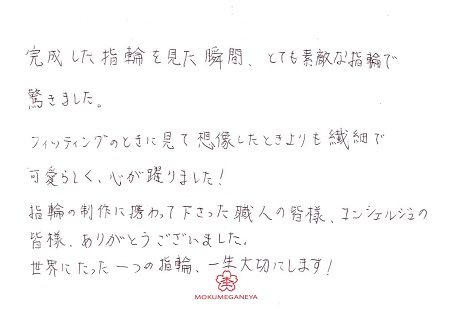 完成した指輪を見た瞬間、とても素敵な指輪で
驚きました。
フィッティングのときに見て想像したときよりも繊細で
可愛らしく、心が躍りました!
指輪の制作に携わって下さった職人の皆様、コンシェルジュの
皆様、ありがとうございました。
世界にたった一つの指輪、一生大切にします!
MOKUMEGANEYA